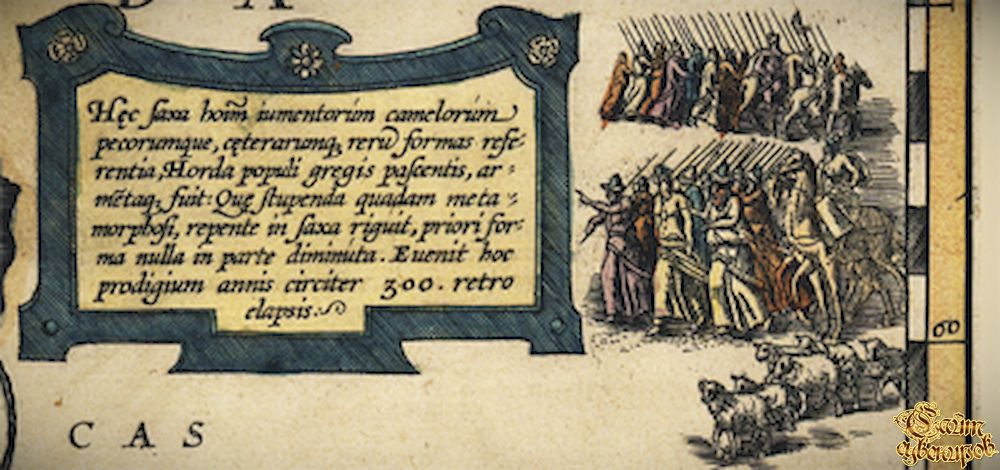 D A
Hęc saxa hoim̄ iumentorúm camelorúm
pecorumque, cęterarunq; rerū formas refe-
rentia, Horda populi gregis pascentis, ar-
mētaq; fuit: Quę stupenda quadam meta-
morphosi, repente in saxa riguit, priori for-
ma nulla in parte diminuta. Euenit hoc
prodigium annis circiter 300. retro
elapsis.
60
C A S
Сайт
сувениров